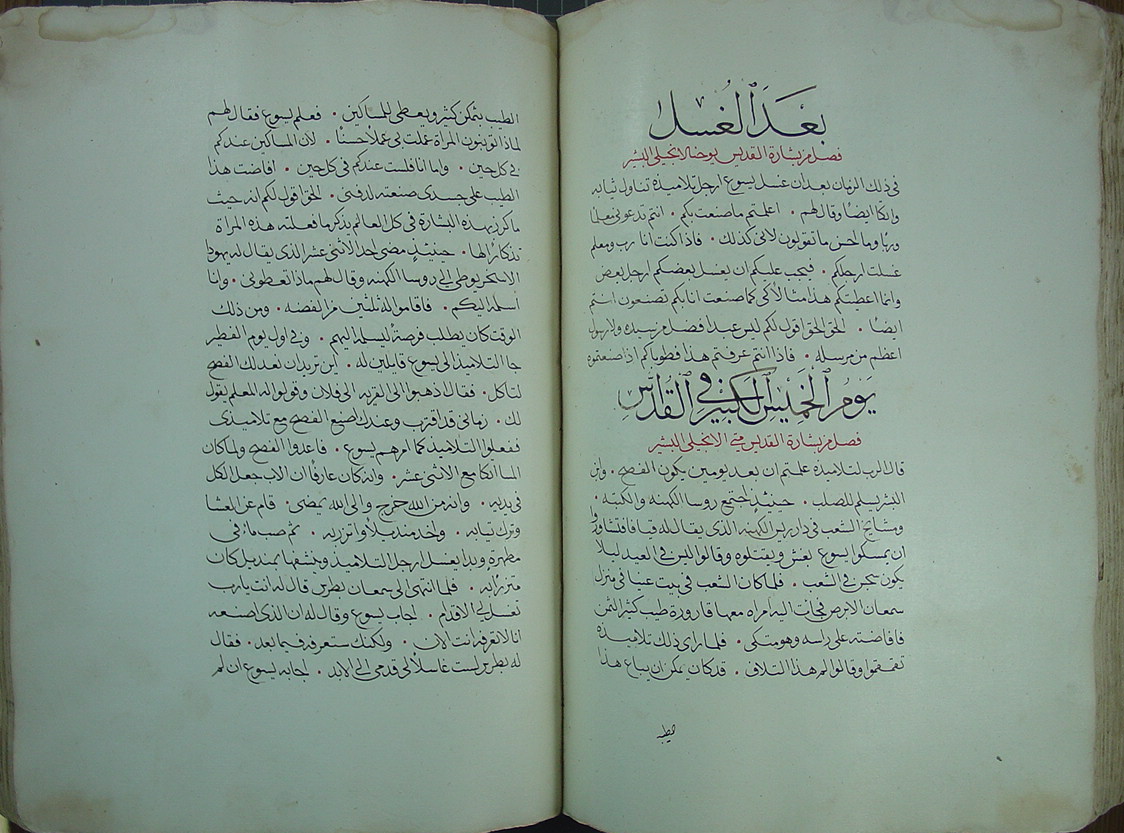 بَعْدَ ٱلْغُسل
فصل من بشارة القديس يوحنا الانجيلي البشير
في ذلك الزمان بعد ان غسل يسوع ارجل تلاميذه تناول ثيابه
واتكا ايضًا وقال لهم • اعلمتم ما صنعت بكم • انتم تدعونى معلما
وربا وما احسن ما تقولون لانى كذلك • فاذا كنت انا رب ومعلم
غسلت ارجلكم • فيجب عليكم ان يغسل بعضكم ارجل بعض
وانما اعطيتكم هذا مثالًا لكى كما صنعت انا بكم تصنعون انتم
ايضًا • الحق الحق اقول لكم ليس عبد افضل من سيده ولا رسول
اعظم من مرسله • فاذا انتم عرفتم هذا فطوباكم اذا صنعتموه
يَومُ ٱلْخَمِيسِ ٱلكَبِيْرِ في القُدَّاسِ
فصل من بشارة القديس متى الانجيلي البشير
قال الرب لتلاميذه علمتم ان بعد يومين يكون الفصح • وابن
البشر يسلم للصلب • حينئذٍ اجتمع روسا الكهنه والكتبه •
ومشايخ الشعب في دار ريس الكهنه الذى يقال له قيافا فتشاوروا
ان يمسكوا يسوع بغش ويقتلوه وقالوا ليس في العيد ليلا
يكون سجس في الشعب • فلما كان الشعب في بيت عنيا في منزل
سمعان الابرص فجات اليه امراه معها قارورة طيب كثير الثمن
فافاضته على راسه وهو متكى • فلما راى ذلك تلاميذه
تقمقموا وقالوا لم هذا التلاف • قد كان يمكن ان يباع هذا
الطيب بثمن كثير ويعطى للمساكين • فعلم يسوع فقال لهم
لماذا تونبون المراة عملت بى عملًا حسنًا • لان المساكين عندكم
في كل حين • واما انا فلست عندكم في كل حين • افاضت هذا
الطيب على جسدى صنعته لدفنى • الحق اقول لكم انه حيث
ما كرز بهذه البشارة في كل العالم يذكر ما فعلته هذه المراة
تذكارًا لها • حينيذٍ مضى احد الاثنى عشر الذى يقال له يهودا
الاسخريوطى الى روسا الكهنه وقال لهم ماذا تعطونى • وانا
اسلمه اليكم • فاقاموا له ثلثين من الفضه • ومن ذلك
الوقت كان يطلب فرصةً ليسلمه اليهم • وفي اول يوم الفطير
جا التلاميذ الى يسوع قايلين له • اين تريد ان نعد لك الفصح
لتاكل • فقال اذهبوا الى القريه الى فلان وقولوا له المعلم يقول
لك • زمانى قد اقترب وعندك اصنع الفصح مع تلاميذى
ففعلوا التلاميذ كما امرهم يسوع • فاعدوا الفصح ولما كان
المسا اتكا مع الاثنى عشر • وانه كان عارفًا ان الاب جعل الكل
في يديه • وانه من الله خرج والى الله يمضى • قام عن العشا
وترك ثيابه • واخذ منديلًا واتزر به • ثم صب ماءً في
مطهرة وبدا يغسل ارجل التلاميذ وينشفها بمنديل كان
متزرًا به • فلما انتهى الى سمعان بطرس قال له انت يا رب
تغسل لي الاقدام • اجاب يسوع وقال له ان الذى اصنعه
انا لا تعرفه انت الان • ولكنك ستعرفه فيما بعد • فقال
له بطرس لست غاسلًا لي قدمي الى الابد • اجابه يسوع ان لم